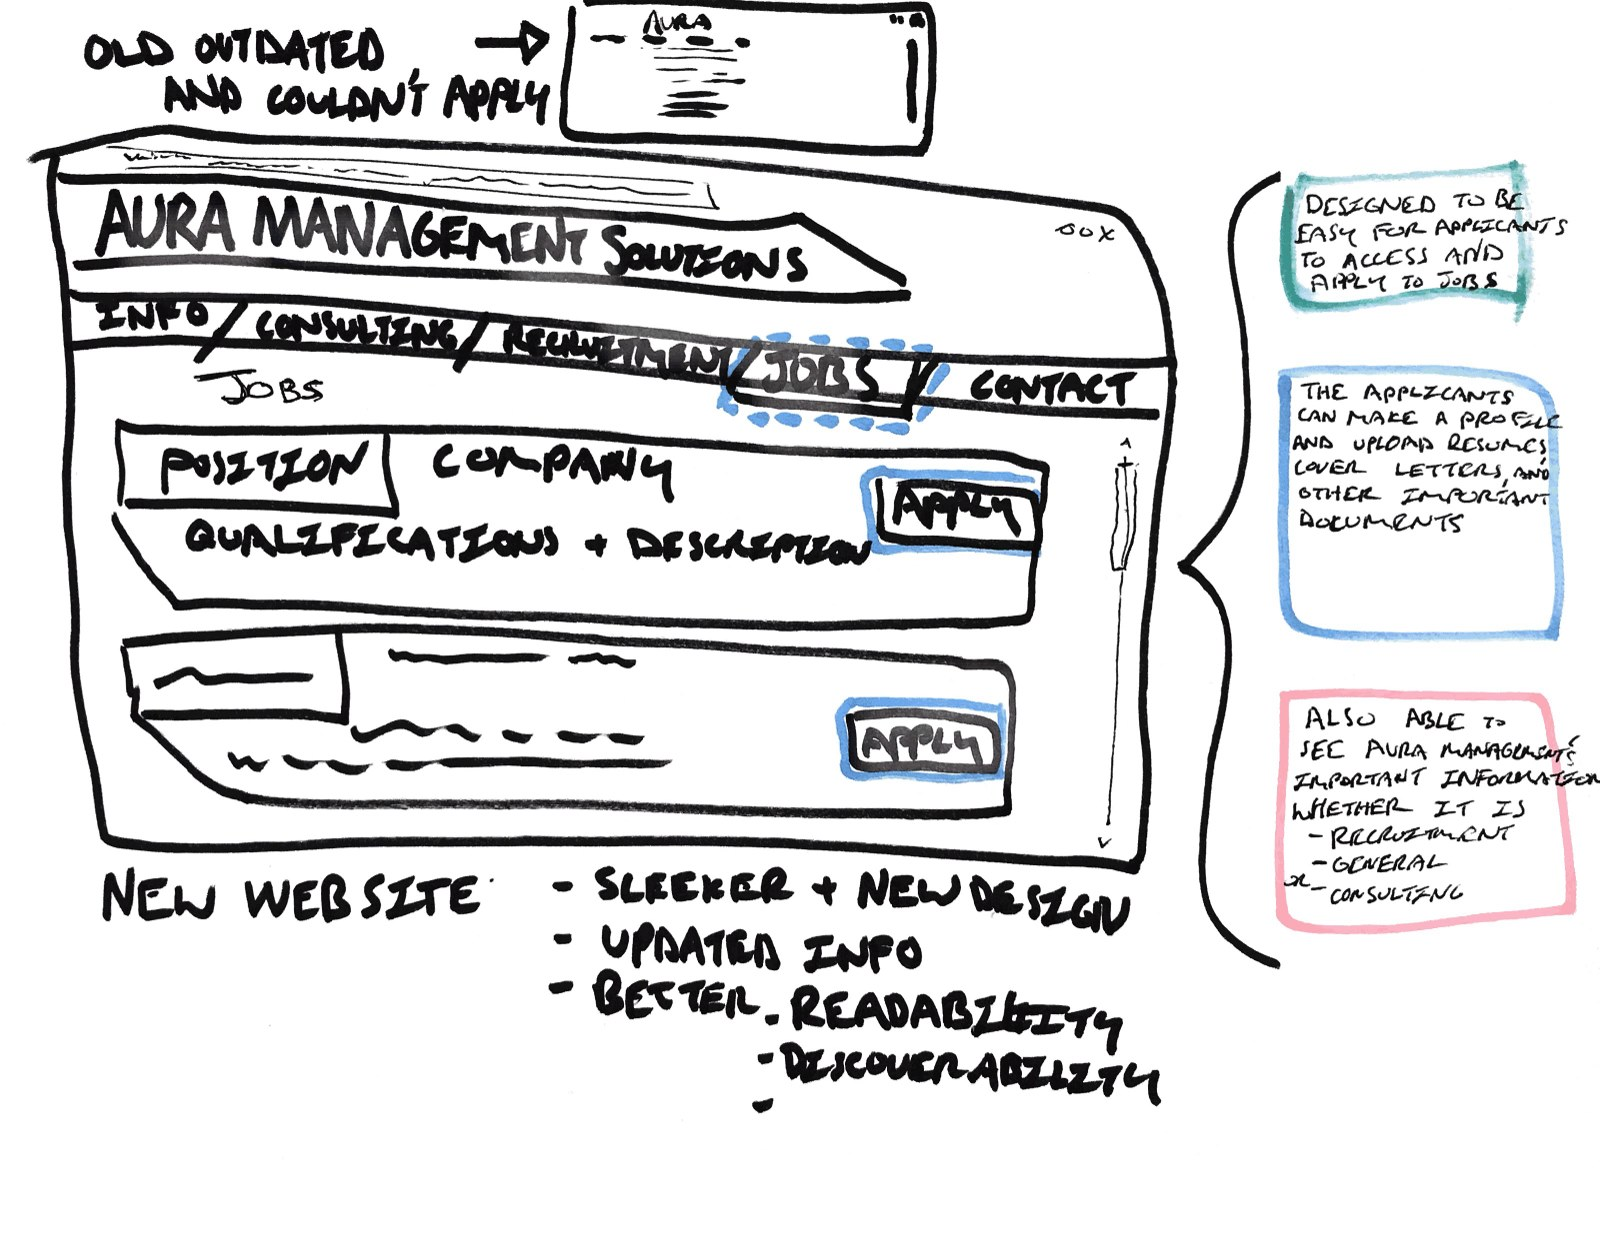 OLD OUTDATED
AND COULDN'T APPLY
AURA
AURA MANAGEMENT SOLUTIONS
INFO / CONSULTING / RECRUITMENT / JOBS / CONTACT
JOBS
POSITION COMPANY
APPLY
QUALIFICATIONS + DESCRIPTION
APPLY
NEW WEBSITE
- SLEEKER + NEW DESIGN
- UPDATED INFO
- BETTER . READABILITY
- DISCOVERABILITY
-
DESIGNED TO BE
EASY FOR APPLICANTS
TO ACCESS AND
APPLY TO JOBS
THE APPLICANTS
CAN MAKE A PROFILE
AND UPLOAD RESUMES,
COVER LETTERS, AND
OTHER IMPORTANT
DOCUMENTS
ALSO ABLE TO
SEE AURA MANAGEMENTS'
IMPORTANT INFORMATION
WHETHER IT IS
- RECRUITMENT
- GENERAL
or - CONSULTING